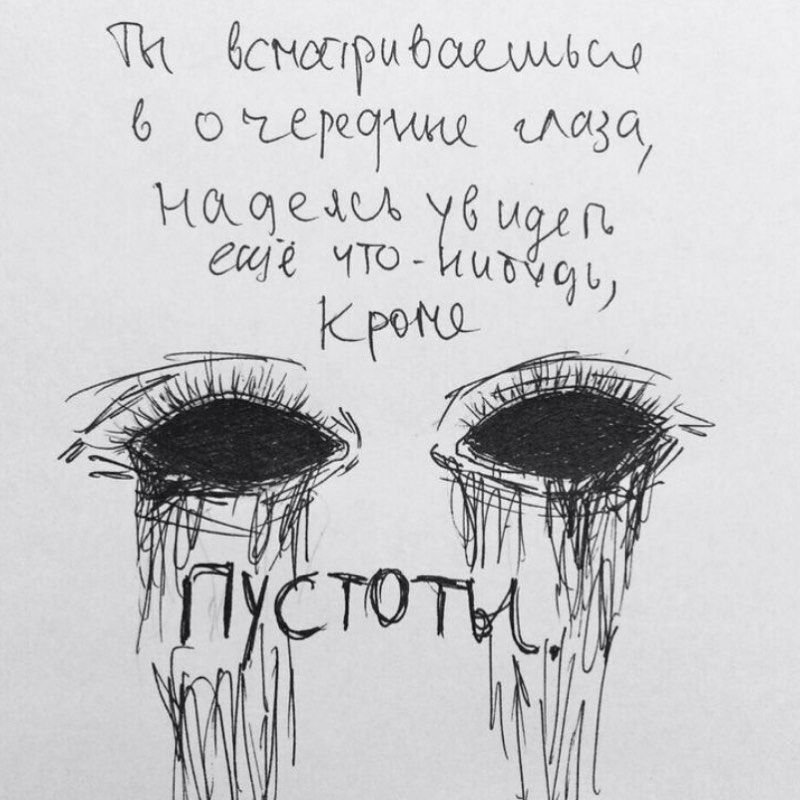 Ты всматриваешься
в очередные глаза,
надеясь увидеть
ещё что-нибудь,
кроме
ПУСТОТЫ.